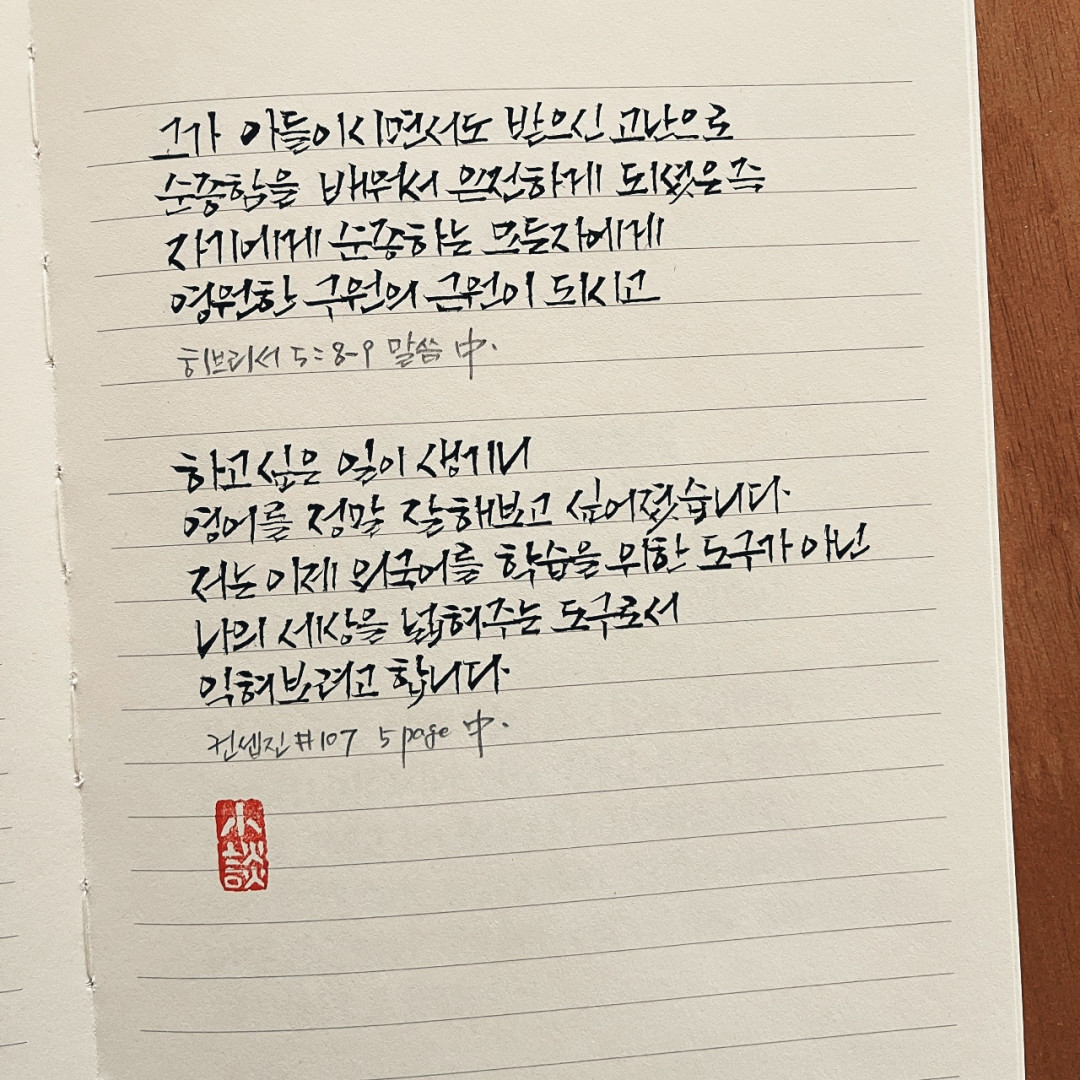 그가 아들이시면서도 받으신 고난으로
순종함을 배워서 완전하게 되셨은즉
자기에게 순종하는 모든자에게
영원한 구원의 근원이 되시고
히브리서 5:8-9 말씀 中.
하고싶은 일이 생기니
영어를 정말 잘해보고 싶어졌습니다.
저는 이제 외국어를 학습을 위한 도구가 아닌
나의 세상을 넓혀주는 도구로서
익혀보려고 합니다.
컨셉진 #107 5 page 中.
小
談